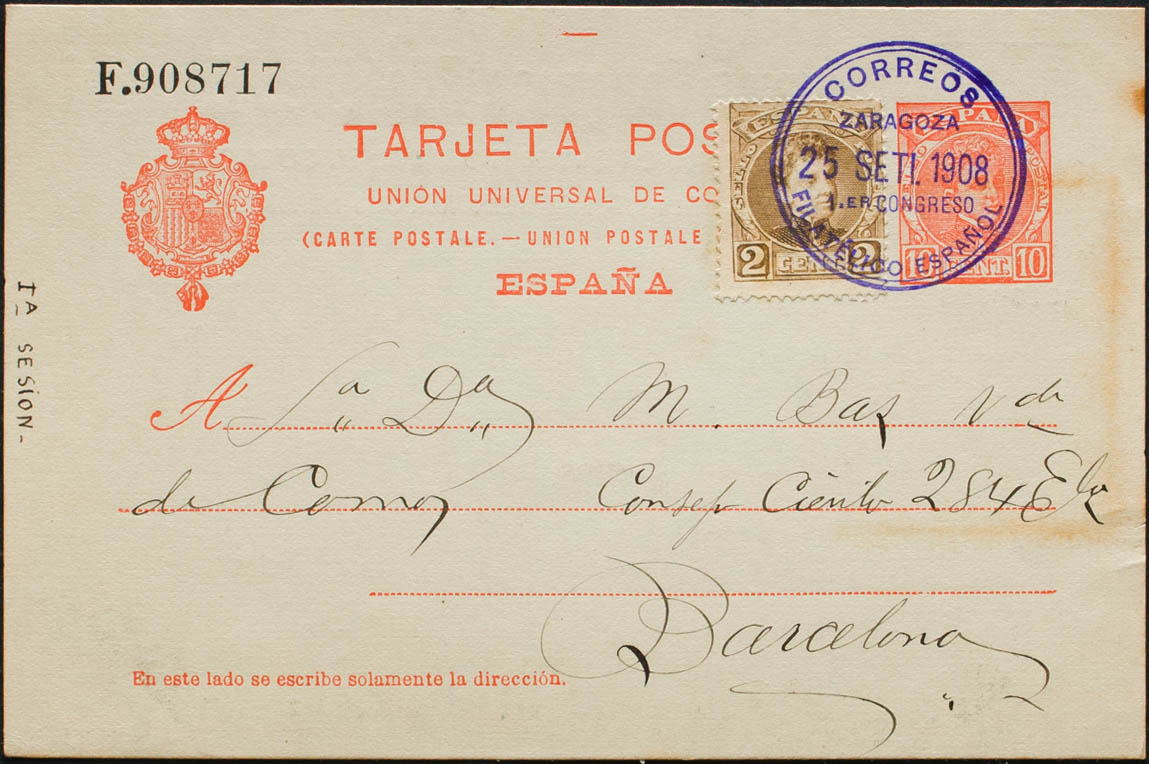 F.908717
TARJETA POS
UNIÓN UNIVERSAL DE CO
(CARTE POSTALE.—UNION POSTALE
ESPAÑA
ESPAÑA
2 CENT 2
PAÑA
POSTAL
10 CENT. 10
CORREOS
ZARAGOZA
25 SETI. 1908
1.ER CONGRESO
FILATÉLICO ESPAÑOL
1A SESION-
A Sra Da M. Bas Vda
de Comas Consejo Ciento 284
Barcelona
En este lado se escribe solamente la dirección.